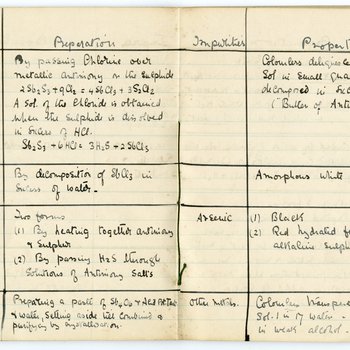 Preparation Impurities Propert
By passing Chlorine over
metallic antimony or the Sulphide
2Sb2S3 + 9Cl2 = 4SbCl3 + 3S2Cl2
A sol. of the Chloride is obtained
when the Sulphide is dissolved
in Excess of HCl.
Sb2S3 + 6HCl = 3H2S + 2SbCl3
Colourless deliques
Sol in Small Qua
decomposed in Exc
("Butter of Anti
By decomposition of SbCl3 in
Excess of water.
Amorphous White
Two forms
(1) By heating together antimony
& Sulphur
(2) By passing H2S through
Solutions of Antimony Salts
Arsenic
(1) Black
(2) Red hydrated f
alkaline Sulph
Preparing a paste of Sb4O6 + Acid Pot Tart
& water, setting aside till combined &
purifying by crystallisation.
Other metals.
Colourless Transpa
Sol. 1 in 17 water.
in weak alcohol.